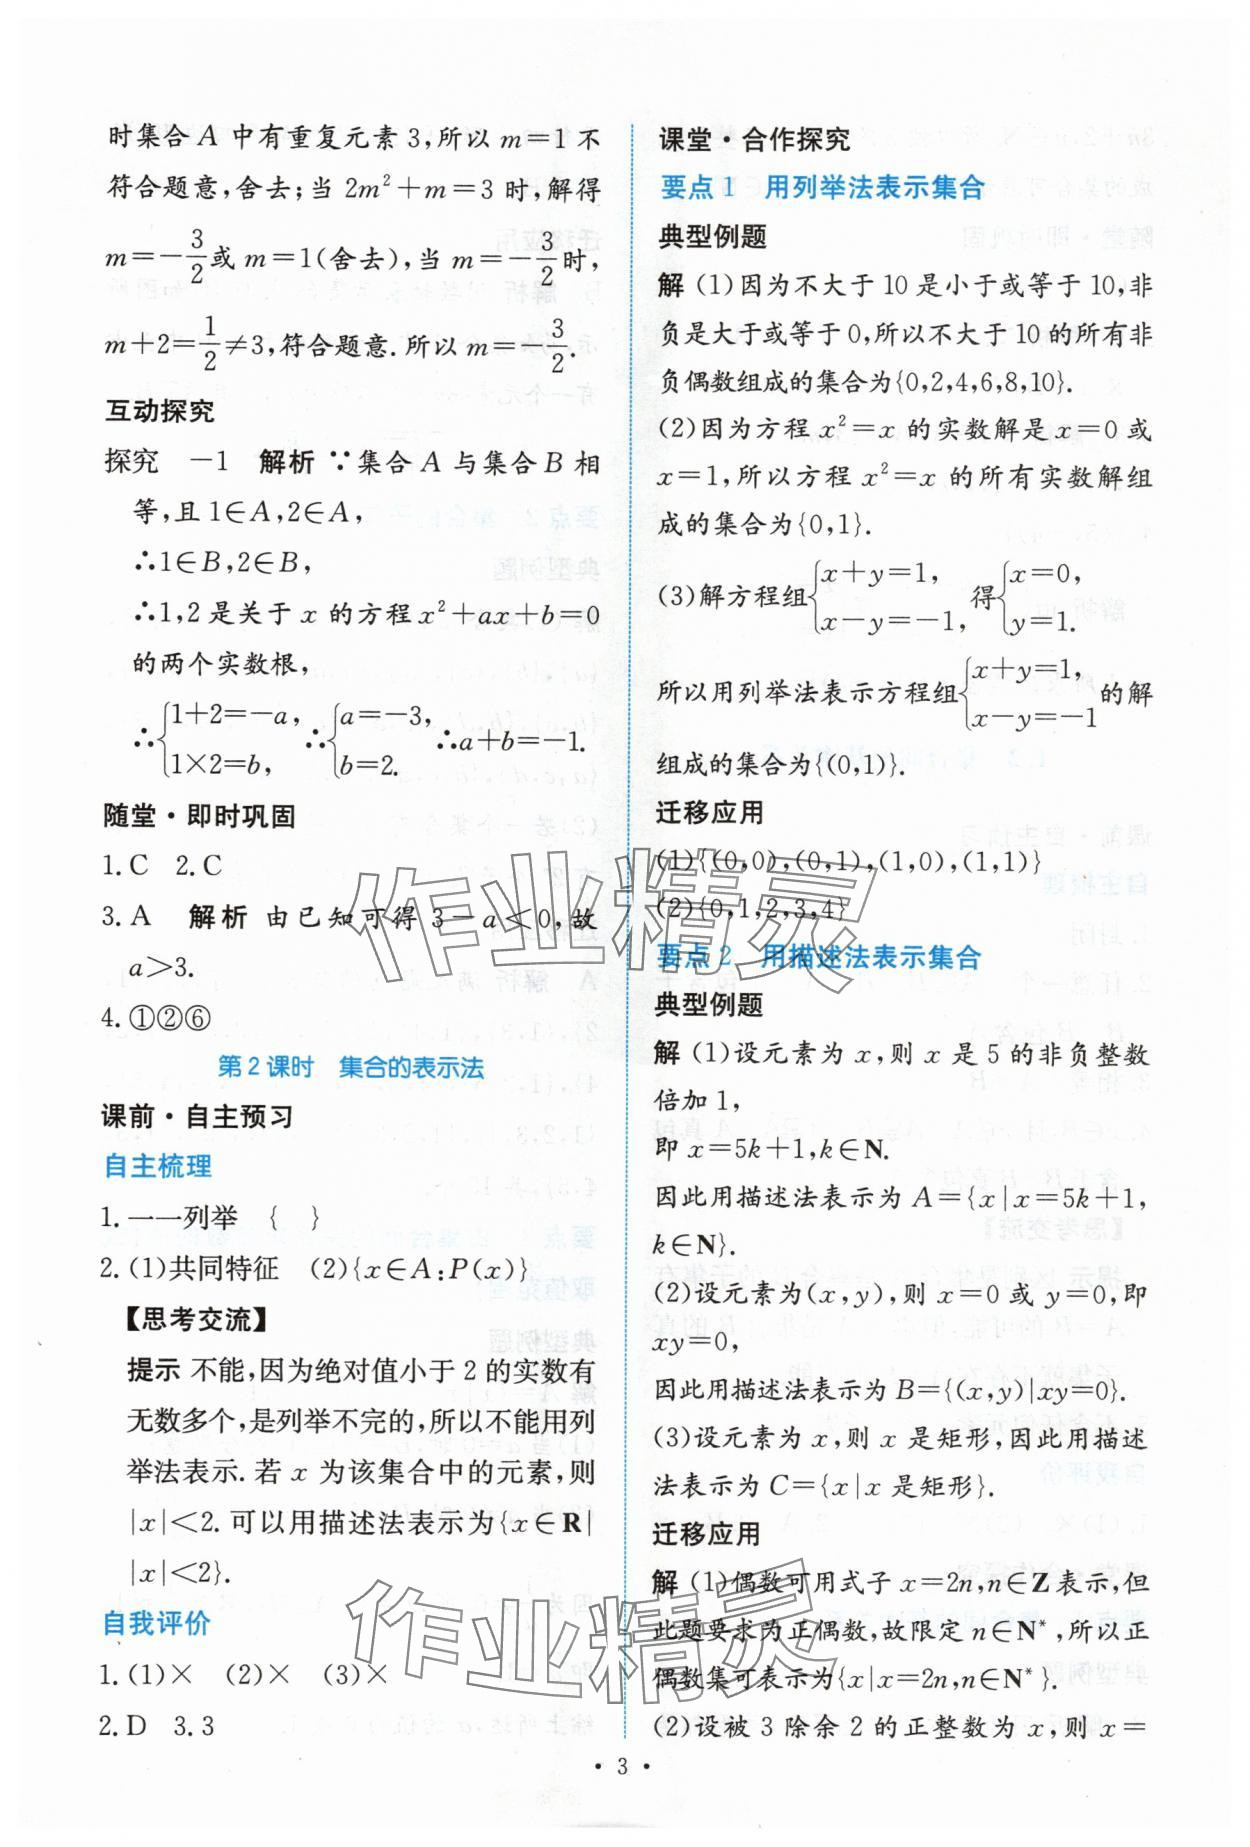 时集合 A 中有重复元素 3,所以 m=1 不
符合题意,舍去;当 2m²+m=3 时,解得
m=-3/2或 m=1(舍去),当 m=-3/2时,
m+2=1/2≠3,符合题意.所以 m=-3/2.
互动探究
探究 -1 解析 ∵集合 A 与集合 B 相
等,且 1∈A,2∈A,
∴1∈B,2∈B,
∴1,2 是关于 x 的方程 x²+ax+b=0
的两个实数根,
∴{1+2=-a, 1×2=b, ∴{a=-3, b=2. ∴a+b=-1.
随堂·即时巩固
1.C 2.C
3.A 解析 由已知可得 3-a<0,故
a>3.
4.①②⑥
第 2 课时 集合的表示法
课前·自主预习
自主梳理
1.一一列举 { }
2.(1)共同特征 (2){x∈A:P(x)}
【思考交流】
提示 不能,因为绝对值小于 2 的实数有
无数多个,是列举不完的,所以不能用列
举法表示.若 x 为该集合中的元素,则
|x|<2.可以用描述法表示为{x∈R|
|x|<2}.
自我评价
1.(1)× (2)× (3)×
2.D 3.3
课堂·合作探究
要点 1 用列举法表示集合
典型例题
解 (1)因为不大于 10 是小于或等于 10,非
负是大于或等于 0,所以不大于 10 的所有非
负偶数组成的集合为{0,2,4,6,8,10}.
(2)因为方程 x²=x 的实数解是 x=0 或
x=1,所以方程 x²=x 的所有实数解组
成的集合为{0,1}.
(3)解方程组{x+y=1, x-y=-1, 得{x=0, y=1.
所以用列举法表示方程组{x+y=1, x-y=-1 的解
组成的集合为{(0,1)}.
迁移应用
(1){(0,0),(0,1),(1,0),(1,1)}
(2){0,1,2,3,4}
要点 2 用描述法表示集合
典型例题
解 (1)设元素为 x,则 x 是 5 的非负整数
倍加 1,
即 x=5k+1,k∈N.
因此用描述法表示为 A={x|x=5k+1,
k∈N}.
(2)设元素为(x,y),则 x=0 或 y=0,即
xy=0,
因此用描述法表示为 B={(x,y)|xy=0}.
(3)设元素为 x,则 x 是矩形,因此用描述
法表示为 C={x|x 是矩形}.
迁移应用
解 (1)偶数可用式子 x=2n,n∈Z 表示,但
此题要求为正偶数,故限定 n∈N*,所以正
偶数集可表示为{x|x=2n,n∈N*}.
(2)设被 3 除余 2 的正整数为 x,则 x=
· 3 ·
作业精灵
作业精灵